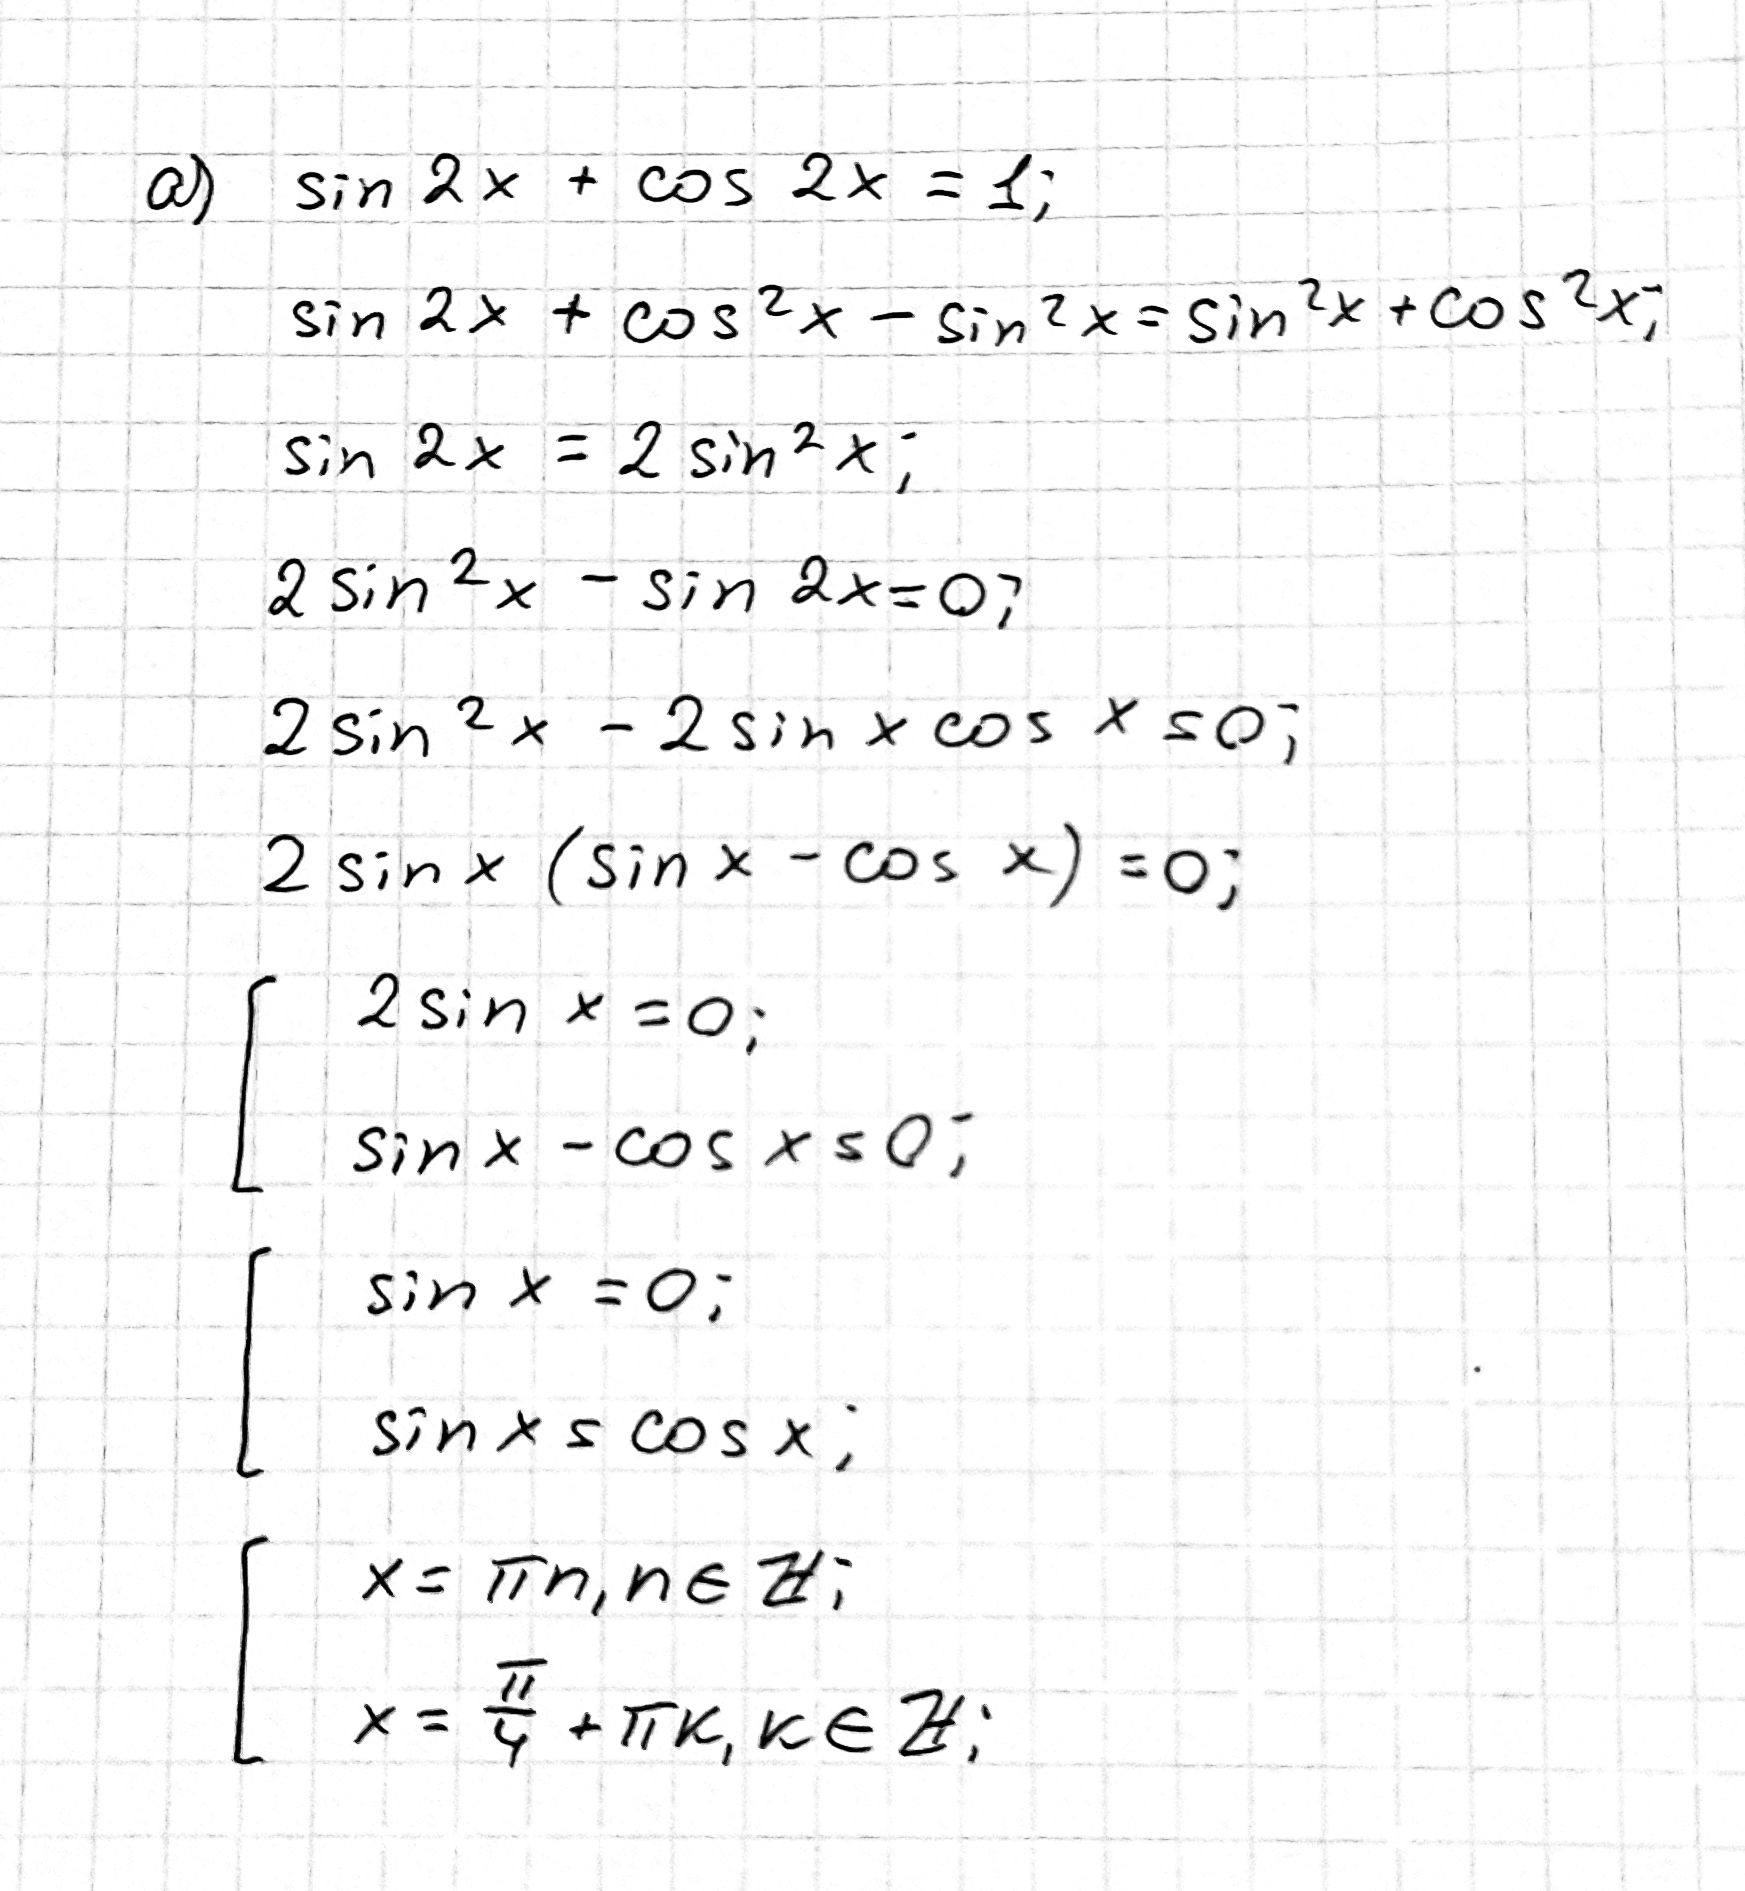 а) sin 2x + cos 2x = 1;
sin 2x + cos²x − sin²x = sin²x + cos²x;
sin 2x = 2 sin²x;
2 sin²x − sin 2x = 0;
2 sin²x − 2 sin x cos x = 0;
2 sin x (sin x − cos x) = 0;
[ 2 sin x = 0;
sin x − cos x = 0;
[ sin x = 0;
sin x = cos x;
[ x = πn, n ∈ ℤ;
x = π/4 + πk, k ∈ ℤ;